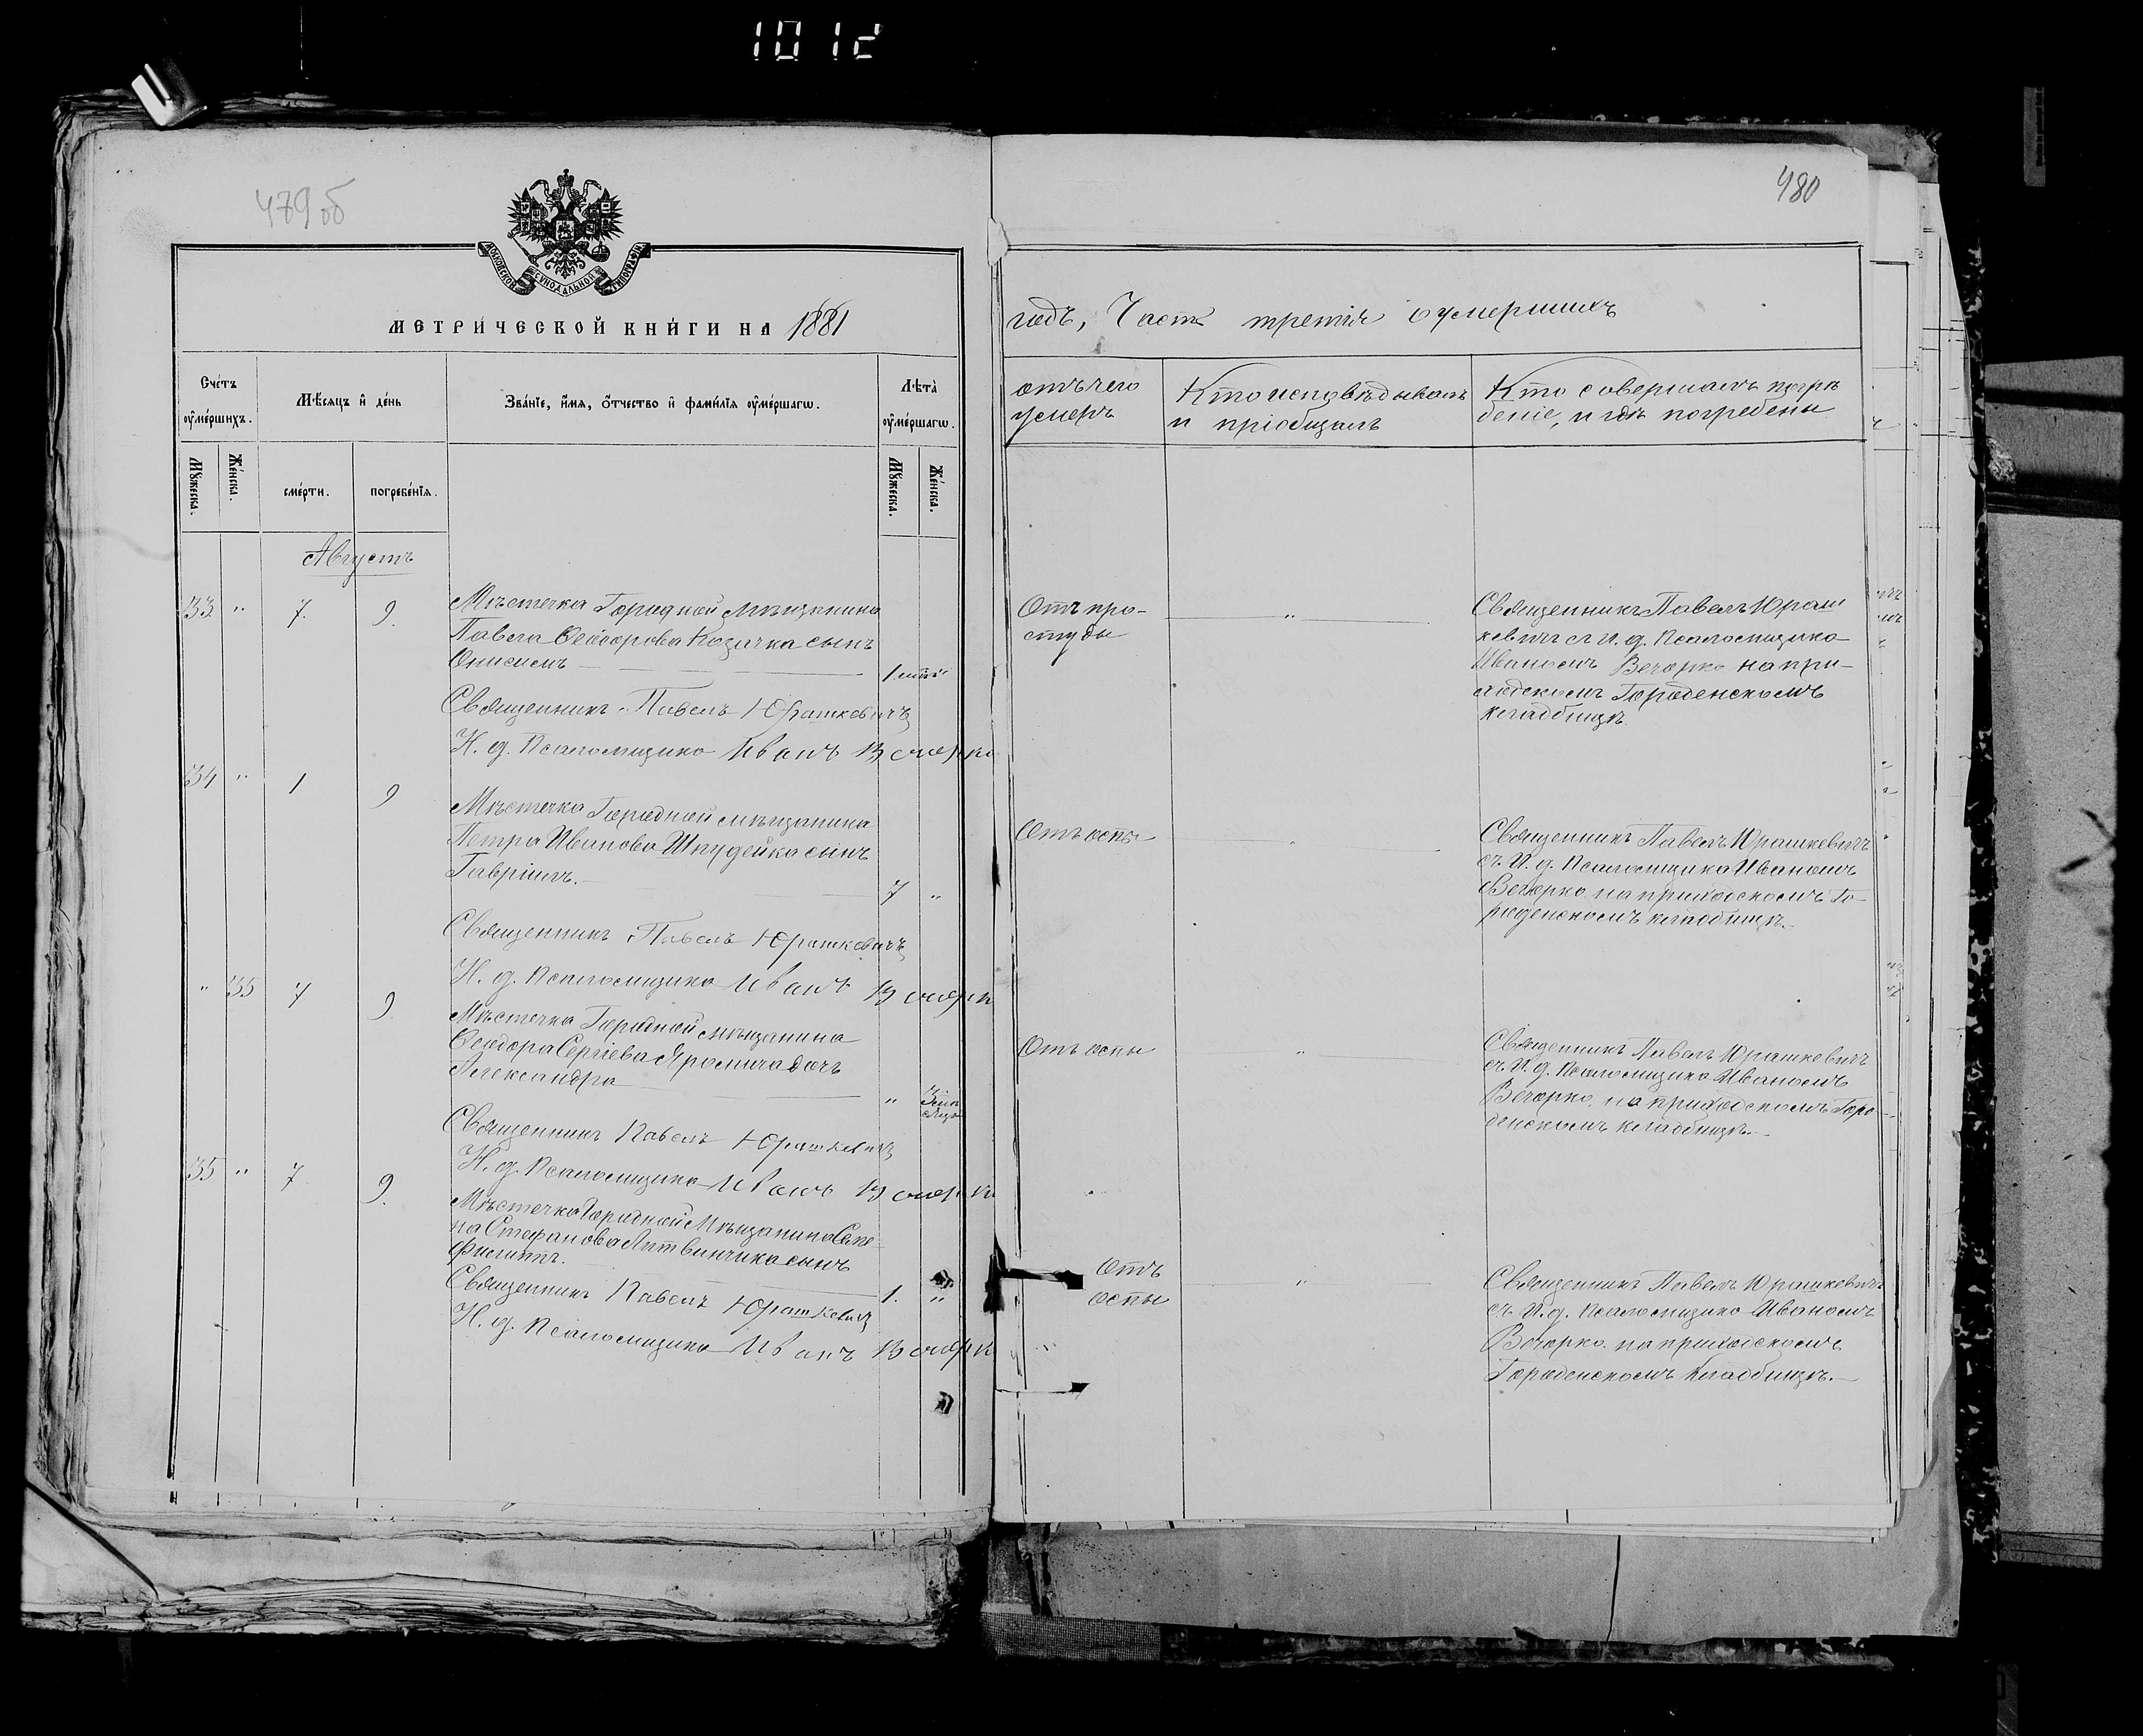 1012
479об
480
МОСКОВСКОЙ СѴНОДАЛЬНОЙ ТИПОГРАФІИ
МЕТРИ́ЧЕСКОЙ КНИ́ГИ НА 1881
годъ, Часть третія о умершихъ
Сче́тъ оу҆ме́ршихъ.
Мѣ́сѧцъ и҆ де́нь
Зва́нїе, и҆́мѧ, ѻ҆́тчество и҆ фами́лїѧ оу҆ме́ршагѡ.
Лѣ́та̀ оу҆ме́ршагѡ.
отъ чего
умеръ
Кто исповѣдывалъ
и пріобщалъ
Кто совершалъ погре
беніе, и гдѣ погребены
Мꙋ́жеска.
Же́нска.
сме́рти.
погребе́нїѧ.
Мꙋ́жеска.
Же́нска.
Августъ
33 " 7. 9.
Мѣстечка Городной мѣщанина
Павла Ѳеодорова Козачка сынъ
Онисимъ
1
Священникъ Павелъ Юрашкевичъ
И. д. Псаломщика Иванъ Вечорко
Отъ про-
студы
"
Священникъ Павелъ Юраш
кевичъ съ И. д. Псаломщика
Иваномъ Вечорко на при-
ходскомъ Городенскомъ
кладбищѣ
34 " 1 9
Мѣстечка Городной мѣщанина
Петра Иванова Шпудейко сынъ
Гавріилъ.
7 "
Священникъ Павелъ Юрашкевичъ
И. д. Псаломщика Иванъ Вечорко
Отъ оспы
"
Священникъ Павелъ Юрашкевичъ
съ И. д. Псаломщика Иваномъ
Вечорко на приходскомъ Го-
роденскомъ кладбищѣ.
" 35 7 9.
Мѣстечка Городной мѣщанина
Ѳеодора Сергіева Яромича дочь
Александра
" 3
Священникъ Павелъ Юрашкевичъ
И. д. Псаломщика Иванъ Вечорко
Отъ оспы
"
Священникъ Павелъ Юрашкевичъ
съ И. д. Псаломщика Иваномъ
Вечорко на приходскомъ Горо
денскомъ кладбищѣ.
35 " 7 9.
Мѣстечка Городной Мѣщанина Семе-
на Стефанова Литвинчика сынъ
Филиппъ.
1. "
Священникъ Павелъ Юрашкевичъ
И. д. Псаломщика Иванъ Вечорко
Отъ
оспы
"
Священникъ Павелъ Юрашкевичъ
съ И. д. Псаломщика Иваномъ
Вечорко на приходскомъ
Городенскомъ Кладбищѣ.